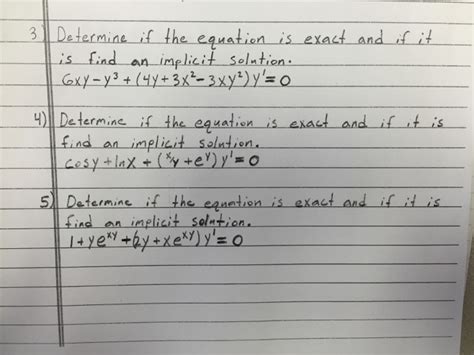 3) Determine if the equation is exact and if it
is find an implicit solution.
6xy - y³ + (4y + 3x² - 3xy²) y' = 0
4) Determine if the equation is exact and if it is
find an implicit solution.
cosy + lnx + (x/y + e^y) y' = 0
5) Determine if the equation is exact and if it is
find an implicit solution.
1 + ye^xy + (2y + xe^xy) y' = 0